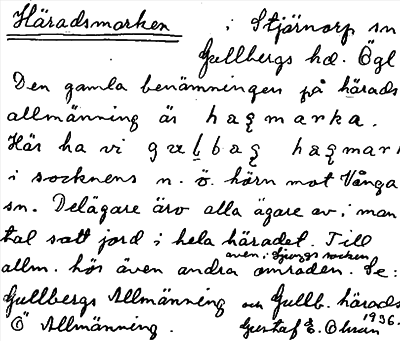 Häradsmarken i Stjärnorp sn
Gullbergs hd. Ögl
Den gamla benämningen på härads
allmänning är hagmarka.
Här ha vi gælbag hagmark
i socknens n. ö. hörn mot Vånga
sn. Delägare äro alla ägare av i man
tal satt jord i hela häradet. Till
även i Ljungs socken
allm. hör även andra områden. Se:
Gullbergs Allmänning och Gullb. härads
Ö Allmänning. Gustaf E. Olsson 1936.